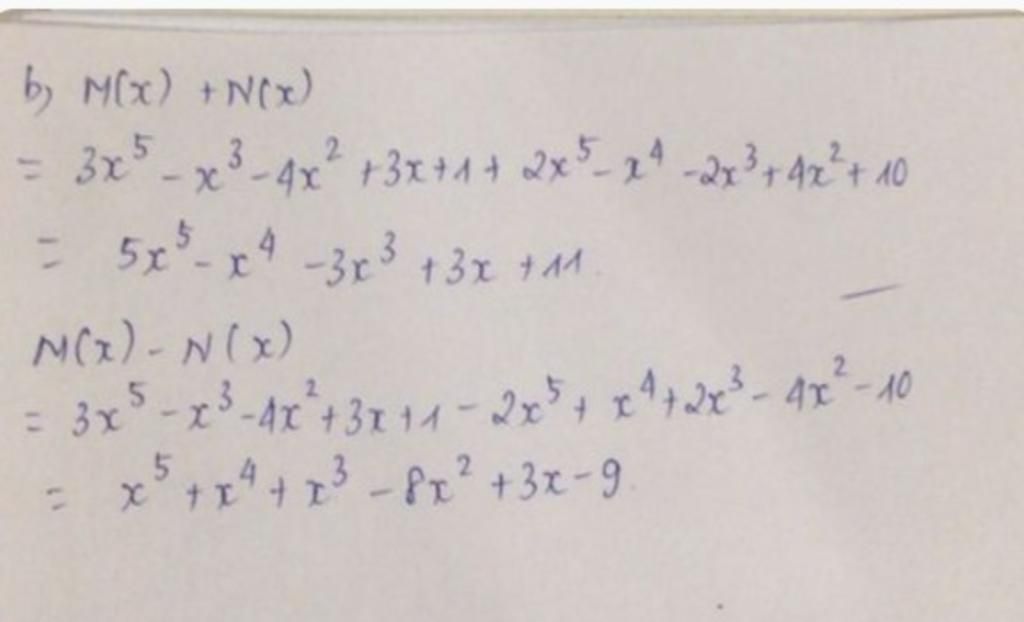 b, M(x) + N(x)
= 3x⁵ - x³ - 4x² + 3x + 1 + 2x⁵ - x⁴ - 2x³ + 4x² + 10
= 5x⁵ - x⁴ - 3x³ + 3x + 11.
M(x) - N(x)
= 3x⁵ - x³ - 4x² + 3x + 1 - 2x⁵ + x⁴ + 2x³ - 4x² - 10
= x⁵ + x⁴ + x³ - 8x² + 3x - 9.